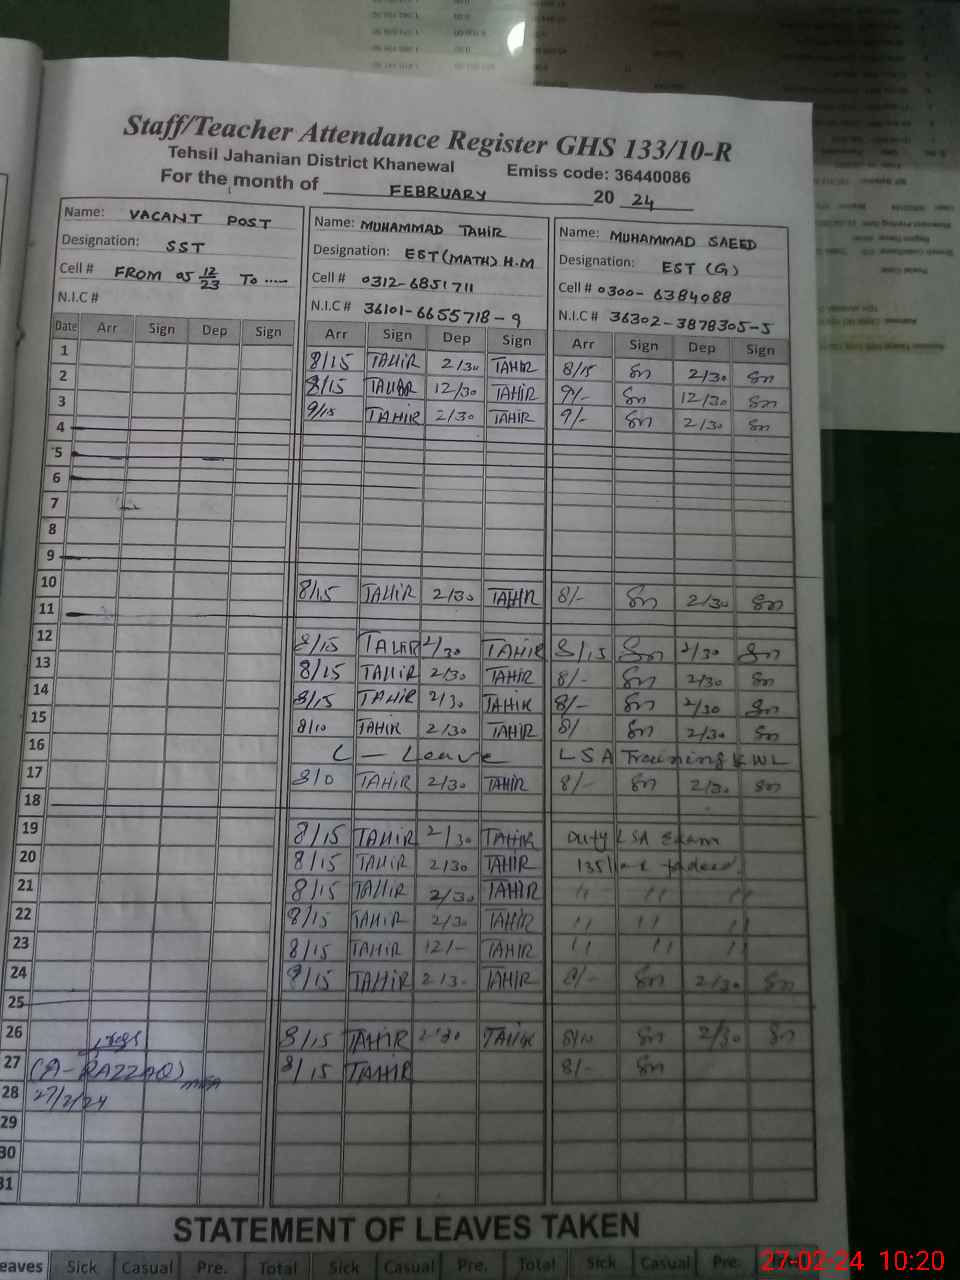 Staff/Teacher Attendance Register GHS 133/10-R
Tehsil Jahanian District Khanewal Emiss code: 36440086
For the month of FEBRUARY 20 24
Name: VACANT POST Name: MUHAMMAD TAHIR Name: MUHAMMAD SAEED
Designation: SST Designation: EST (MATH) H.M Designation: EST (G)
Cell # FROM 05 12/23 To ..... Cell # 0312-6851711 Cell # 0300-6384088
N.I.C # N.I.C # 36101-6655718-9 N.I.C # 36302-3878305-5
Date Arr Sign Dep Sign Arr Sign Dep Sign Arr Sign Dep Sign
1 8/15 TAHIR 2/30 TAHIR 8/15 Sn 2/30 Sn
2 8/15 TAHIR 12/30 TAHIR 9/- Sn 12/30 Sn
3 9/15 TAHIR 2/30 TAHIR 9/- Sn 2/30 Sn
4
5
6
7
8
9
10 8/15 TAHIR 2/30 TAHIR 8/- Sn 2/30 Sn
11
12 8/15 TAHIR 2/30 TAHIR 8/15 Sn 2/30 Sn
13 8/15 TAHIR 2/30 TAHIR 8/- Sn 2/30 Sn
14 8/15 TAHIR 2/30 TAHIR 8/- Sn 2/30 Sn
15 8/10 TAHIR 2/30 TAHIR 8/ Sn 2/30 Sn
16 C - Leave LSA Training KWL
17 8/0 TAHIR 2/30 TAHIR 8/- Sn 2/30 Sn
18
19 8/15 TAHIR 2/30 TAHIR Duty LSA Exam
20 8/15 TAHIR 2/30 TAHIR
21 8/15 TAHIR 2/30 TAHIR " " "
22 8/15 TAHIR 2/30 TAHIR " " "
23 8/15 TAHIR 12/- TAHIR " " "
24 8/15 TAHIR 2/30 TAHIR 8/- Sn 2/30 Sn
25
26 8/15 TAHIR 2/30 TAHIR 8/10 Sn 2/30 Sn
27 (A-RAZZAQ) MEA 8/15 TAHIR 8/- Sn
28 27/2/24
29
30
31
STATEMENT OF LEAVES TAKEN
eaves Sick Casual Pre. Total Sick Casual Pre. Total Sick Casual Pre.
27-02-24 10:20